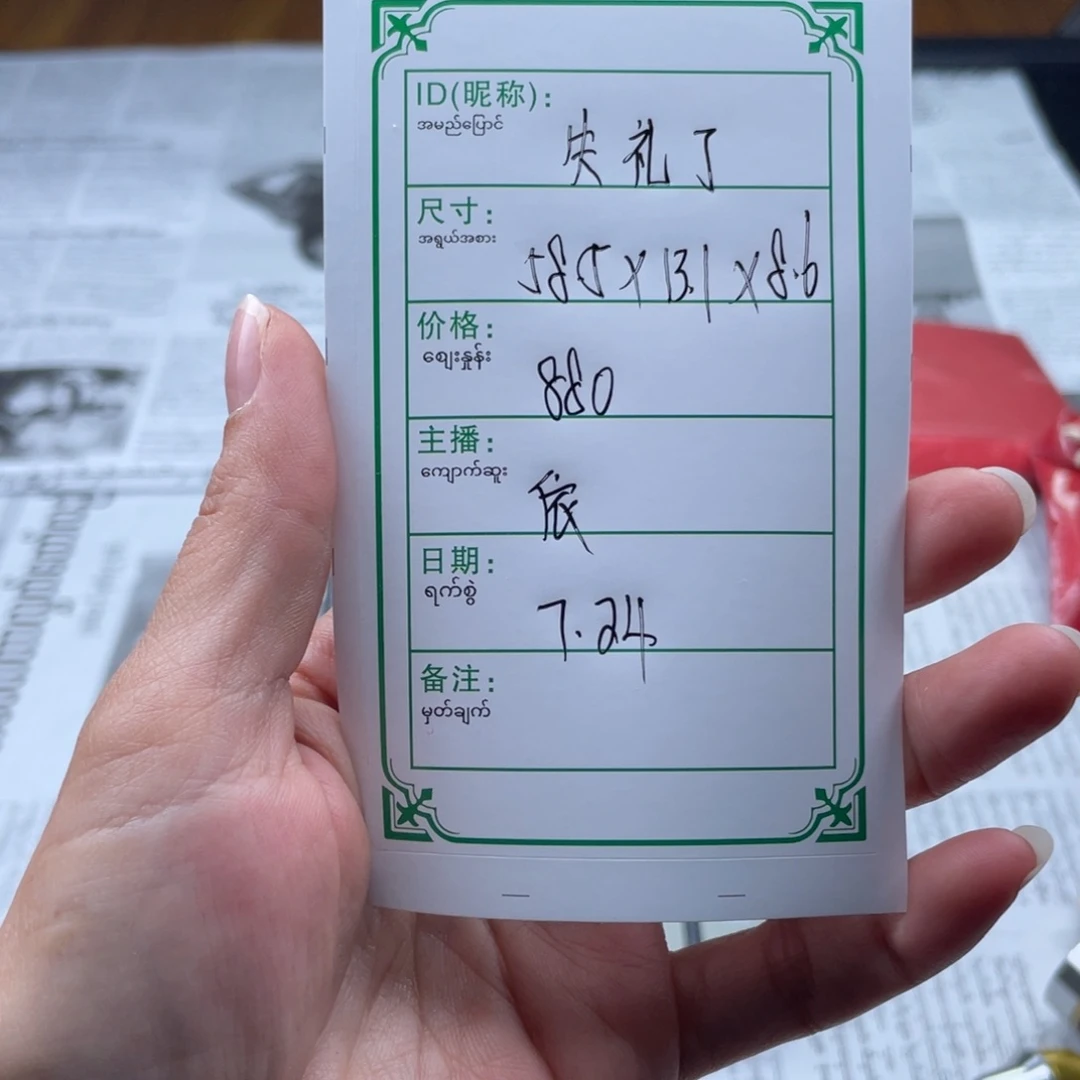 ID(昵称):
အမည်ပြောင်
失礼了
尺寸:
အရွယ်အစား
585×13.1×8.6
价格:
ဈေးနှုန်း
880
主播:
ကျောက်ဆူး
辰
日期:
ရက်စွဲ
7.24
备注:
မှတ်ချက်